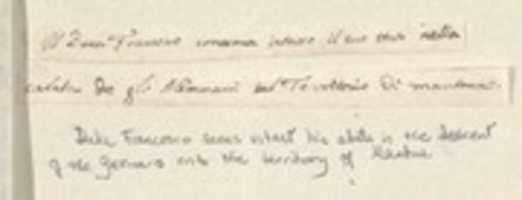 Il Duca Francesco intatto il suo stato nella
calata De gli Alemanni nel Territorio Di mantoua.
Duke Francesco saves intact his state in the descent
of the Germans into the territory of Mantua